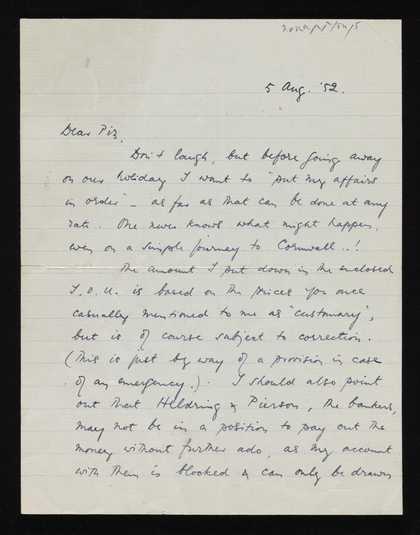 5 Aug. '52.
Dear Piz,
Don't laugh, but before going away
on our holiday I want to "put my affairs
in order" – as far as that can be done at any
rate. One never knows what might happen,
even on a simple journey to Cornwall..!
The amount I put down in the enclosed
I.O.U. is based on the prices you once
casually mentioned to me as "customary",
but is of course subject to correction.
(This is just by way of a provision in case
of an emergency.). I should also point
out that Heldring & Pierson, the bankers,
may not be in a position to pay out the
money without further ado, as my account
with them is blocked & can only be drawn